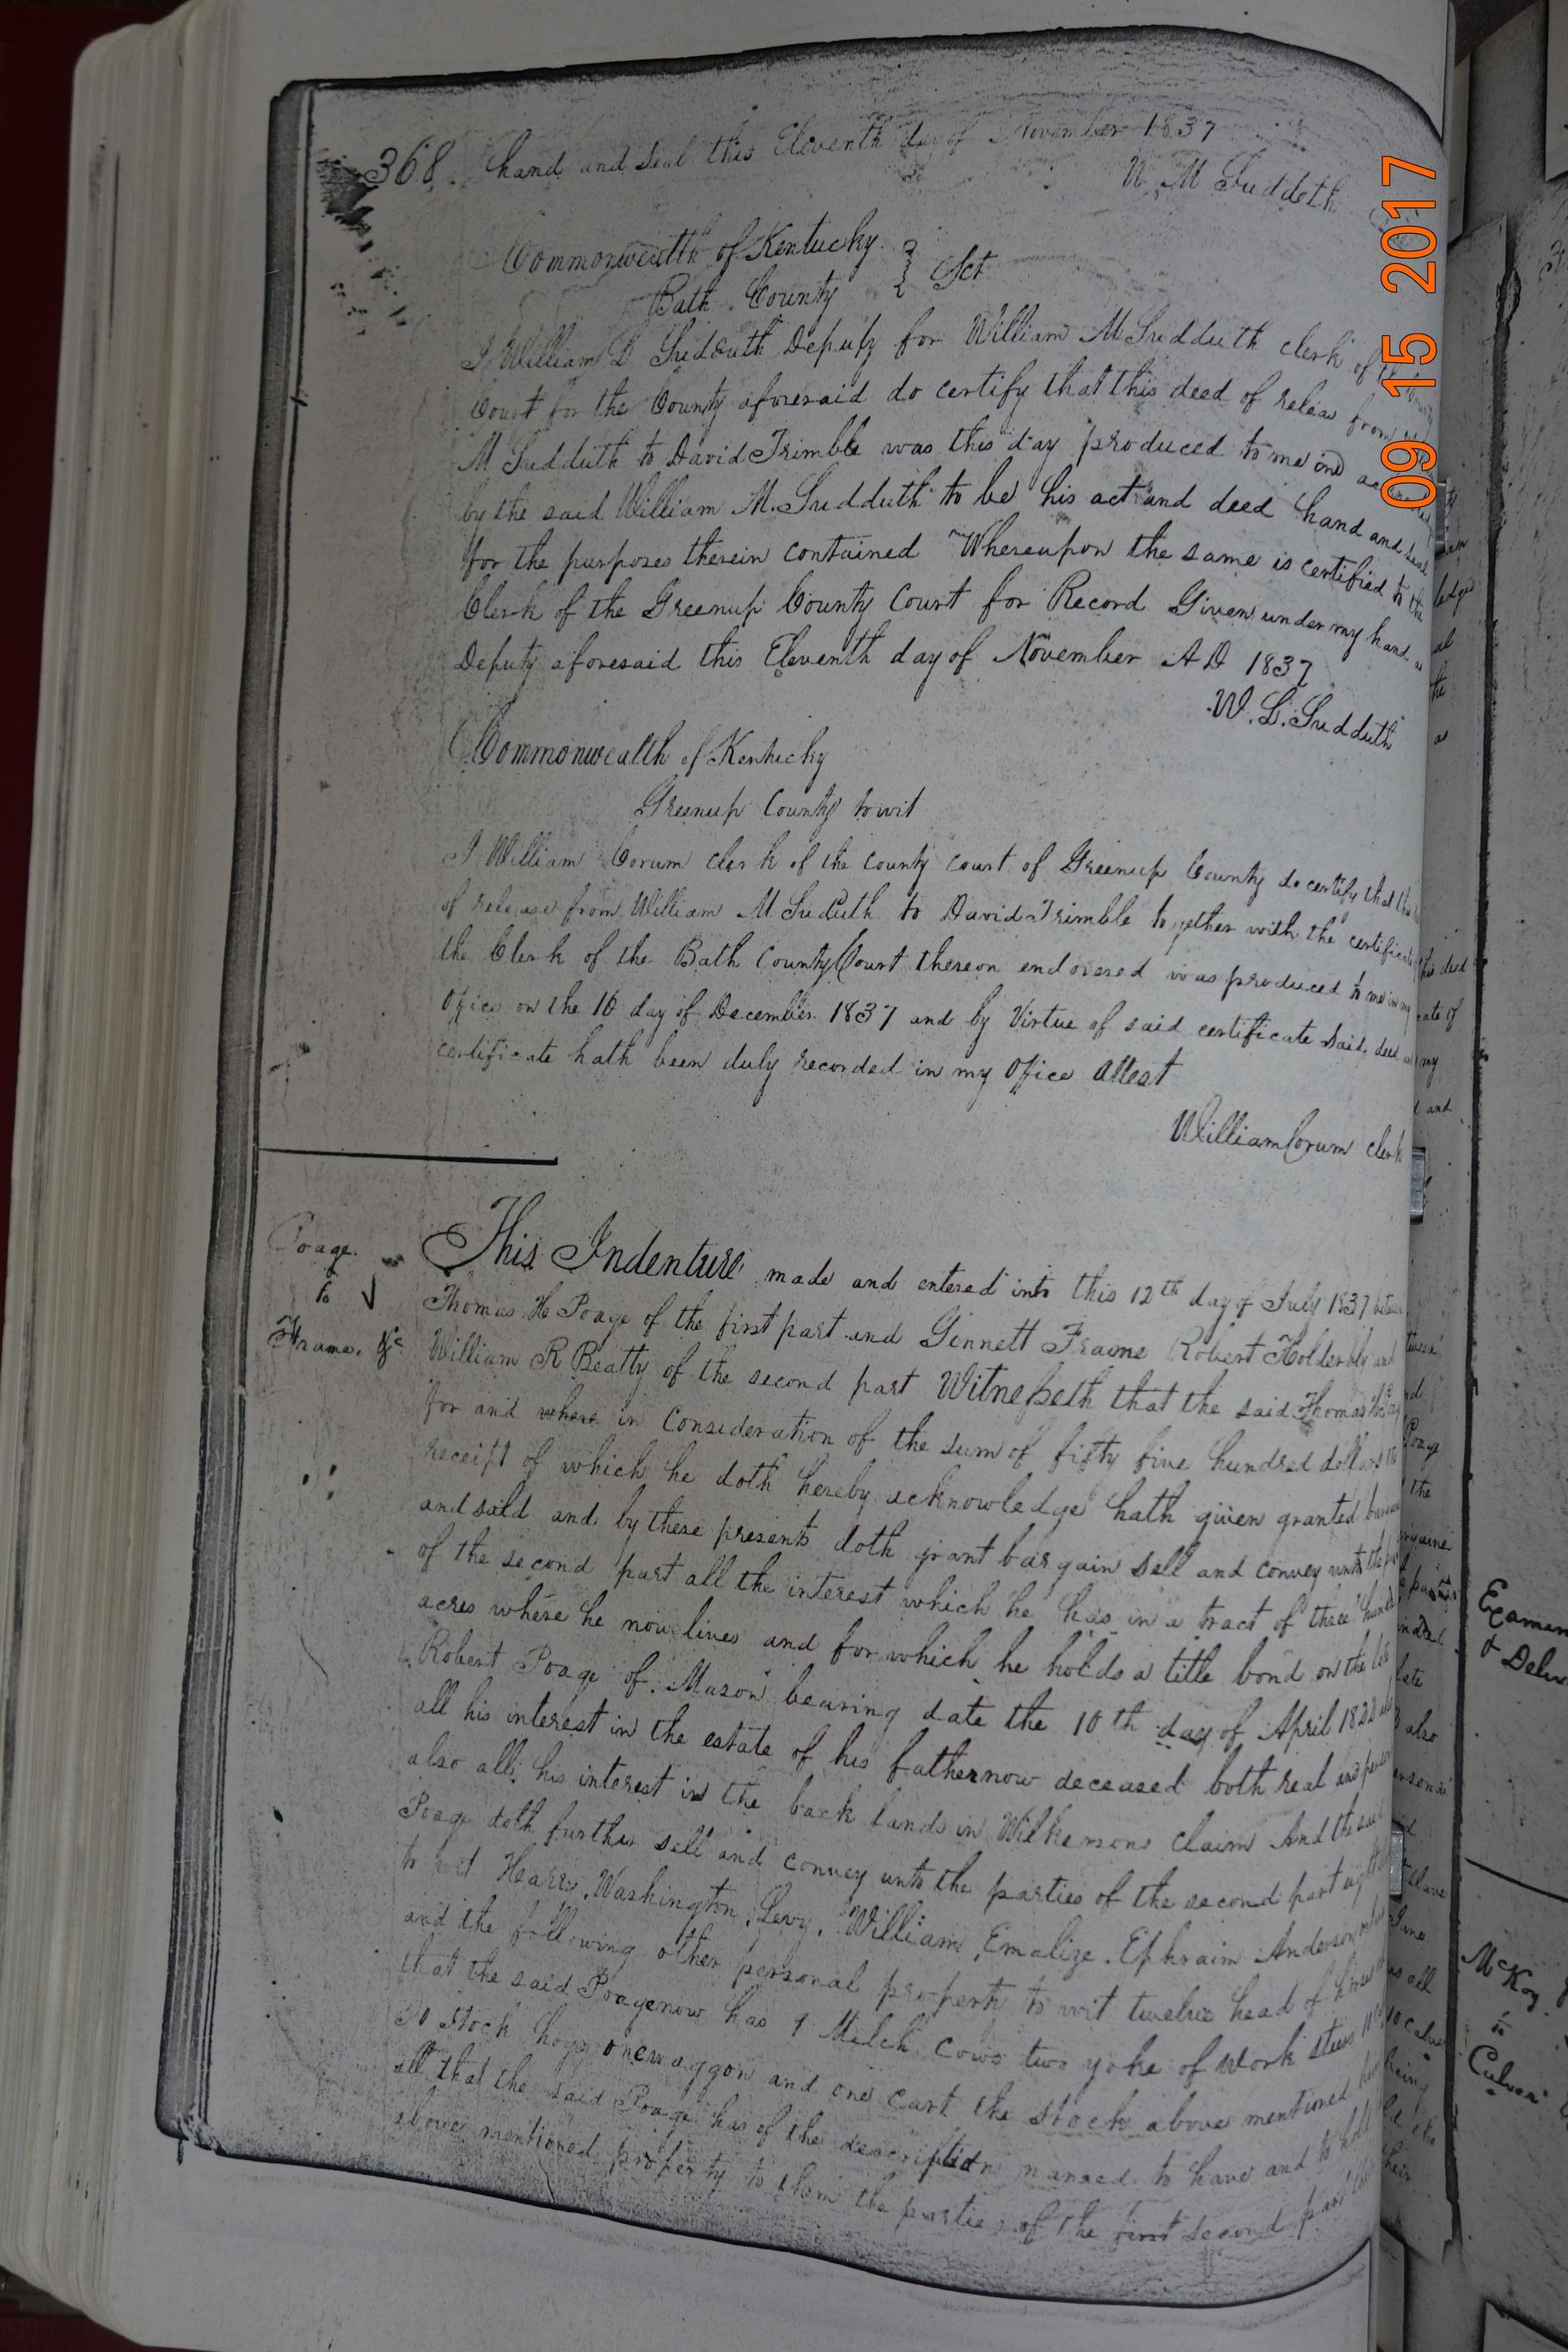 368. hand and seal this Eleventh day of November 1837
W. M Suddeth
Commonwealth of Kentucky
Bath County } Sct
I William L Sudduth Deputy for William M Sudduth clerk of the County
Court for the County aforesaid do certify that this deed of releas from
M Sudduth to David Trimble was this day produced to me and
by the said William M. Sudduth to be his act and deed hand and seal
for the purposes therein contained Whereupon the same is certified to the
Clerk of the Greenup County Court for Record Given under my hand as
Deputy aforesaid this Eleventh day of November A D 1837
W. L. Sudduth
Commonwealth of Kentucky
Greenup County to wit
I William Corum clerk of the County Court of Greenup County do certify that this deed
of release from William M Suduth to David Trimble together with the certificate of
the Clerk of the Bath County Court thereon endorsed was produced to me in my
Office on the 16 day of December 1837 and by Virtue of said certificate said deed and
certificate hath been duly recorded in my Office Attest
William Corum clerk
Poage
to
Frame. &c
This Indenture made and entered into this 12th day of July 1837 between
Thomas H Poage of the first part and Ginnett Frame Robert Holderby and
William R Beatty of the second part Witnesseth that the said Thomas H Poage
for and where in consideration of the sum of fifty five hundred dollars the
receipt of which he doth hereby acknowledge hath given granted
and sold and by these presents doth grant bargain sell and convey unto the parties
of the second part all the interest which he has in a tract of three hundred
acres where he now lives and for which he holds a title bond on the late
Robert Poage of Mason bearing date the 10th day of April 1822 also
all his interest in the estate of his father now deceased both real and personal
also all his interest in the back lands in Wilkersons claim And the said
Poage doth further sell and convey unto the parties of the second part
to wit Harry, Washington, Levy, William, Emalize. Ephraim Anderson
and the following other personal property to wit twelve head of
that the said Poage now has 9 Milch cows two yoke of work steers 10 calves
stock hogs one waggon and one cart the stock above mentioned being
all that the said Poage has of the description named to have and to hold the
above mentioned property to them the parties of the first second part their
09 15 2017
McKoy
to
Culver